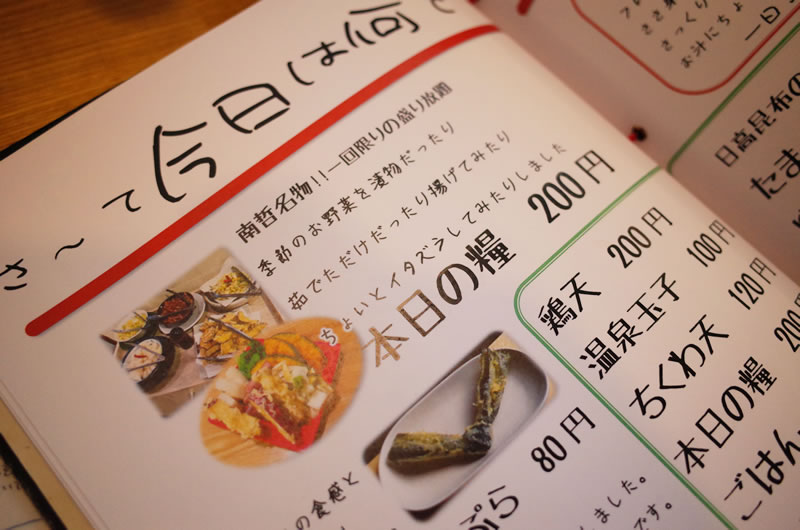 さ～て今日は何
南哲名物!!一回限りの盛り放題
季節のお野菜を漬物だったり
茹でただけだったり揚げてみたり
ちょいとイタズラしてみたりしました
本日の糧 200円
80円
の食感と
ぷら
しました。
です。
ざっくり
お汁にちょ
一日
日高昆布の
たま
鶏天 200円
温泉玉子 100円
ちくわ天 120円
本日の糧 200
ごはん